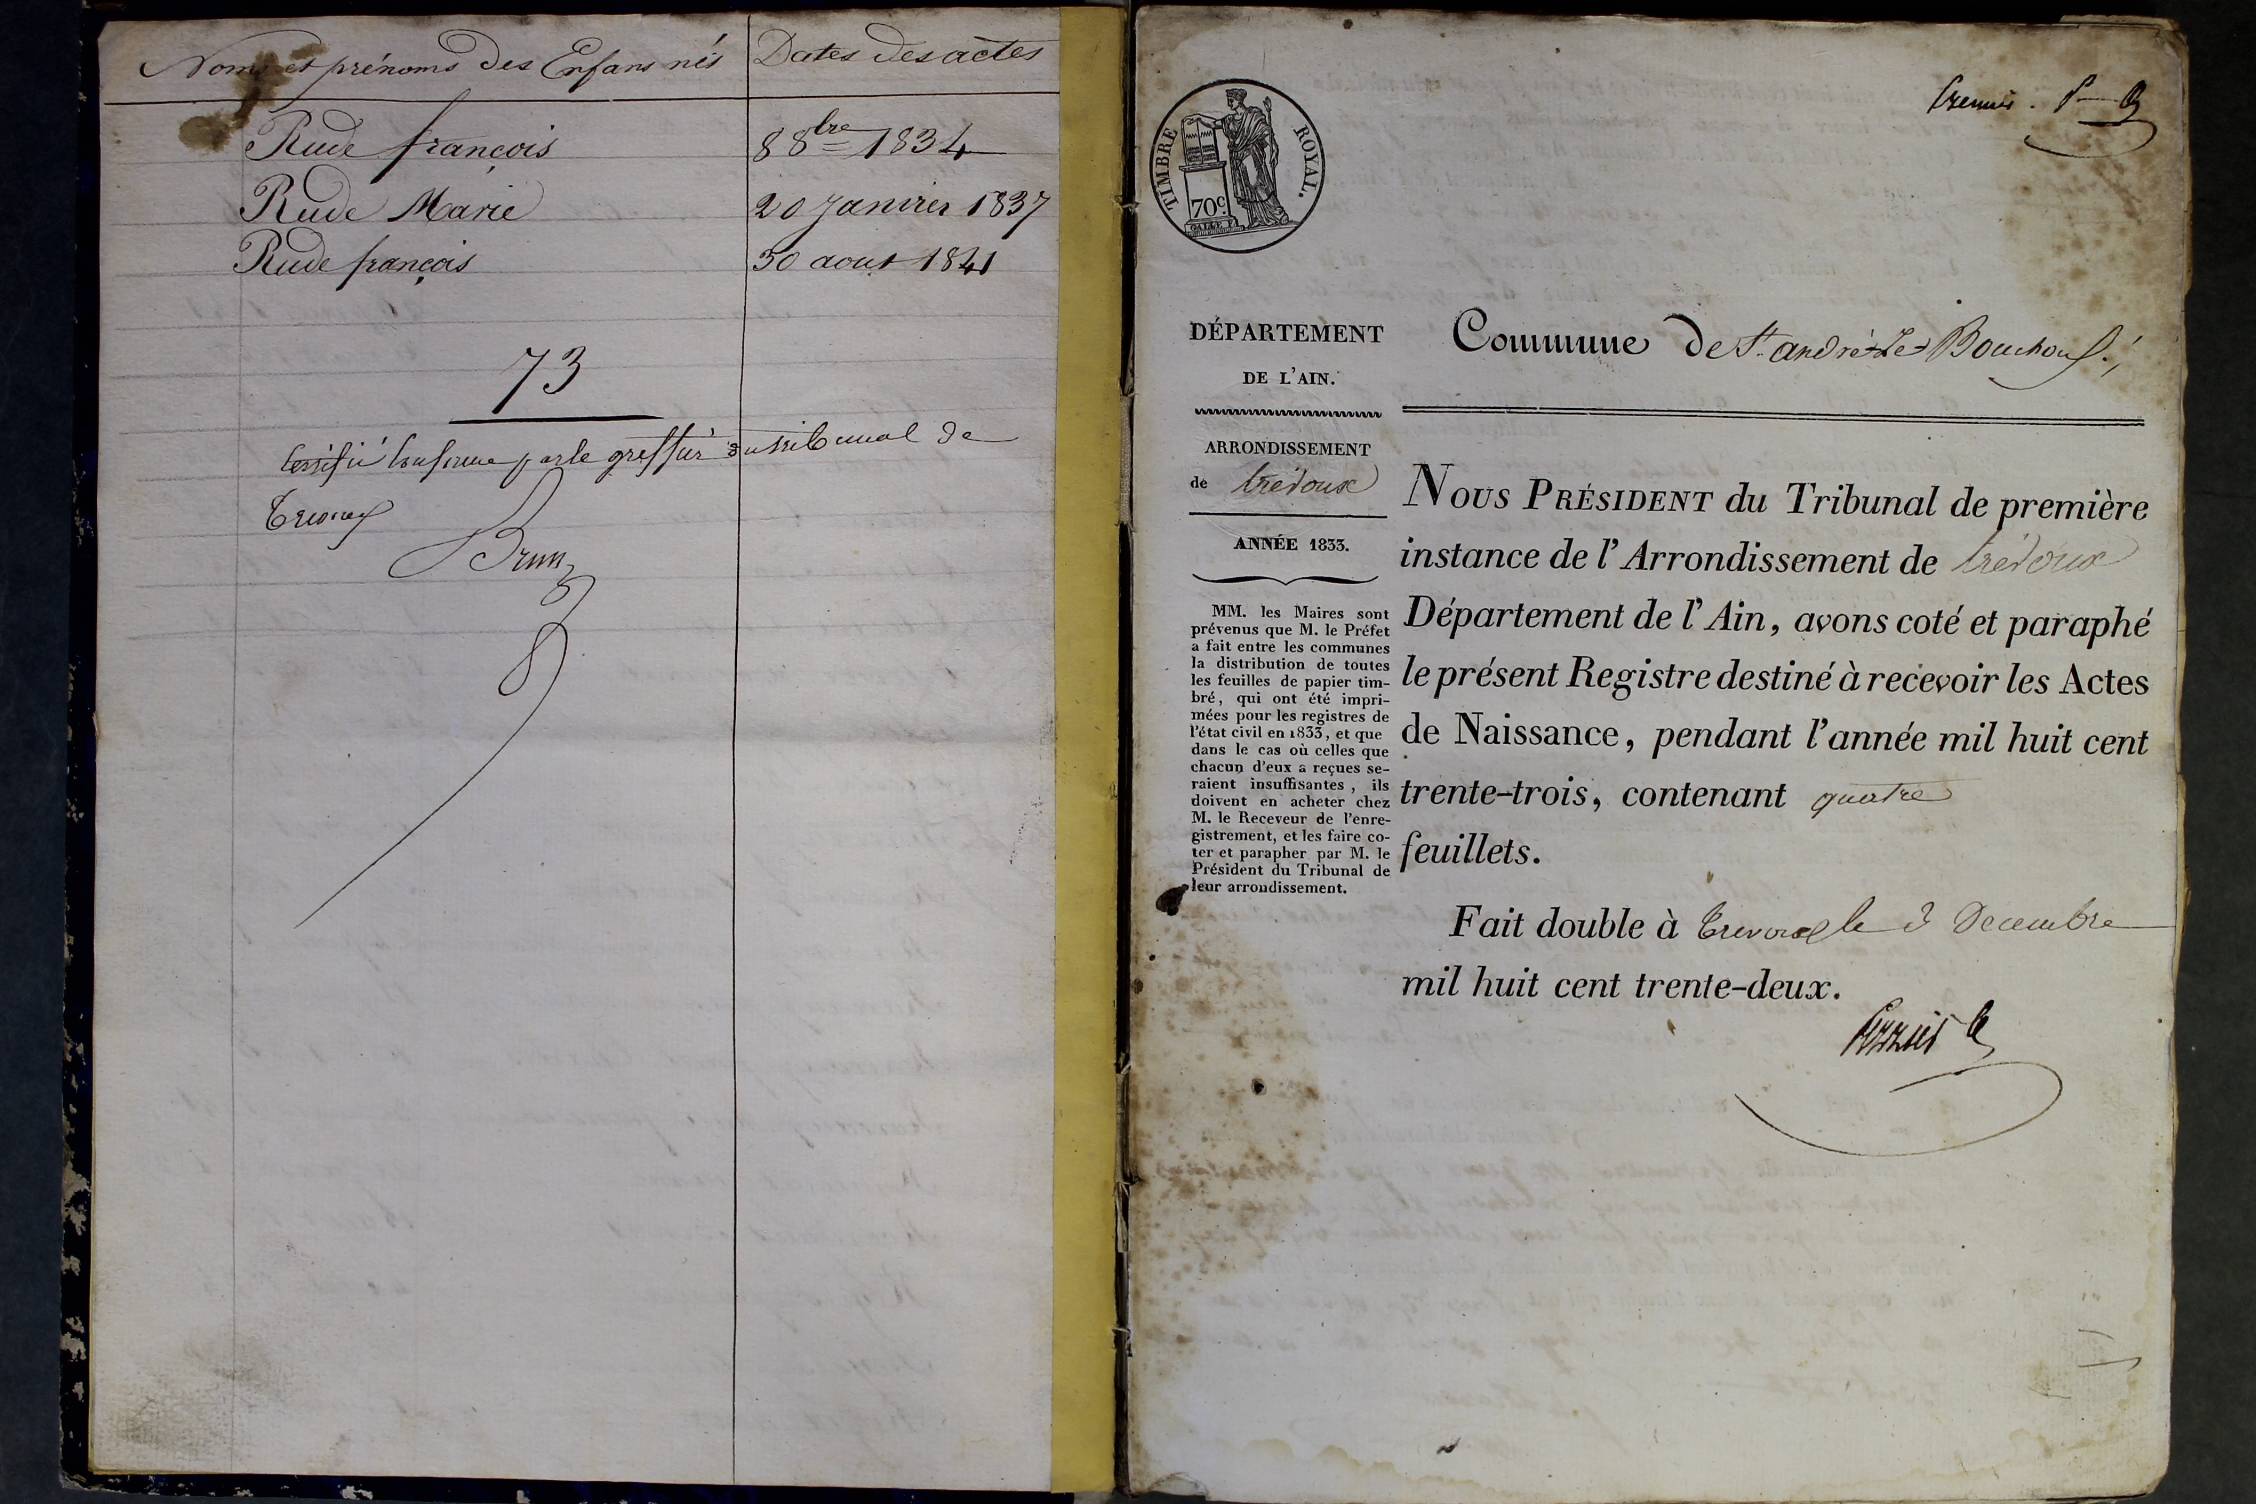 Noms et prénoms des Enfans nés
Dates des actes
Rude françois
8 8bre 1834
Rude Marie
20 janvier 1837
Rude françois
30 aout 1841
73
Certifié conforme par le greffier du tribunal de
Trevoux
Brun
TIMBRE ROYAL.
70c.
GALLE F.
Premier.
DÉPARTEMENT
DE L'AIN.
ARRONDISSEMENT
de trévoux
ANNÉE 1833.
MM. les Maires sont
prévenus que M. le Préfet
a fait entre les communes
la distribution de toutes
les feuilles de papier tim-
bré, qui ont été impri-
mées pour les registres de
l'état civil en 1833, et que
dans le cas où celles que
chacun d'eux a reçues se-
raient insuffisantes, ils
doivent en acheter chez
M. le Receveur de l'enre-
gistrement, et les faire co-
ter et parapher par M. le
Président du Tribunal de
leur arrondissement.
Commune de St. andré-Le-Bouchoux
NOUS PRÉSIDENT du Tribunal de première
instance de l'Arrondissement de trévoux
Département de l'Ain, avons coté et paraphé
le présent Registre destiné à recevoir les Actes
de Naissance, pendant l'année mil huit cent
trente-trois, contenant quatre
feuillets.
Fait double à Trevoux le 3 Decembre
mil huit cent trente-deux.